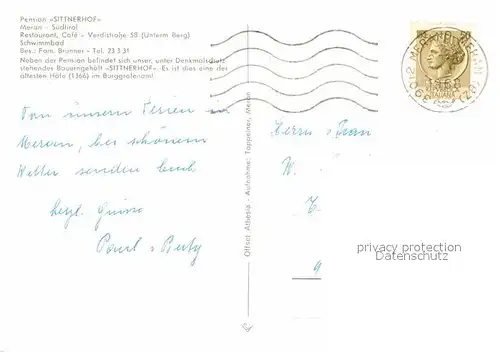 Pension «SITTNERHOF»
Meran - Südtirol
Restaurant, Café - Verdistraße 58 (Unterm Berg)
Schwimmbad
Bes.: Fam. Brunner - Tel. 23 3 31
Neben der Pension befindet sich unser, unter Denkmalschutz
stehendes Bauerngehöft «SITTNERHOF». Es ist dies eine der
ältesten Höfe (1366) im Burggrafenamt.
Von unseren Ferien in
Meran, bei schönem
Wetter senden Euch
herzl. Grüsse
Paul + Betty
Offset Athesia - Aufnahme: Tappeiner, Meran
Herrn + Frau
W.
privacy protection
permanently applied